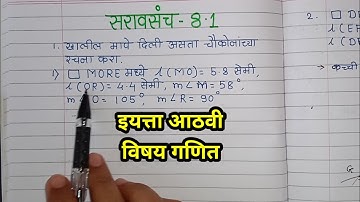 सरावसंच - 8.1
1. खालील मापे दिली असता चौकोनांच्या
रचना करा.
1) □ MORE मध्ये l(MO) = 5.8 सेमी,
l(OR) = 4.4 सेमी, m∠M = 58°,
m∠O = 105°, m∠R = 90°
इयत्ता आठवी
विषय गणित
2.
कच्ची